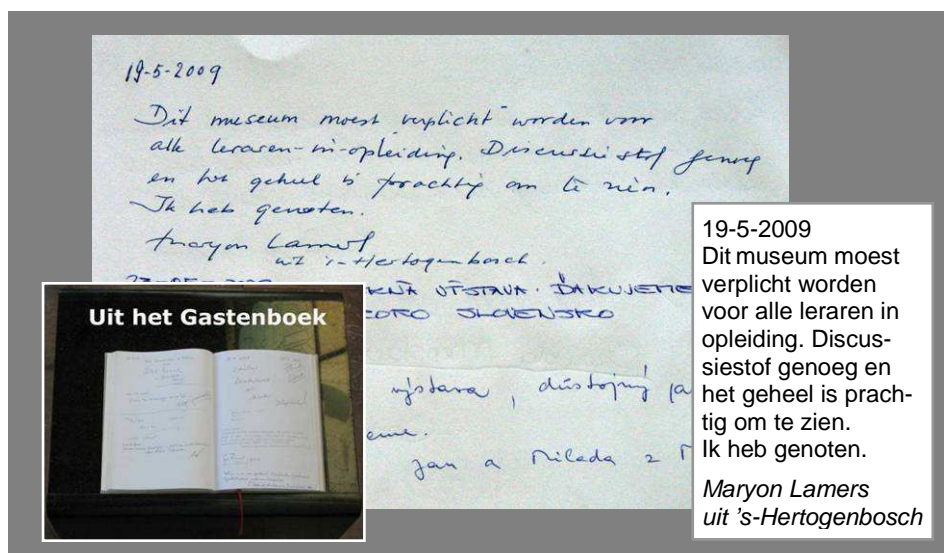 19-5-2009
Dit museum moest verplicht worden voor
alle leraren-in-opleiding. Discussiestof genoeg
en het geheel is prachtig om te zien.
Ik heb genoten.
Maryon Lamers
uit 's-Hertogenbosch.
VÝSTAVA. ĎAKUJEME
SLOVENSKO
výstava, důstojný
Jan a Milada z
Uit het Gastenboek
19-5-2009
Dit museum moest
verplicht worden
voor alle leraren in
opleiding. Discus-
siestof genoeg en
het geheel is prach-
tig om te zien.
Ik heb genoten.
Maryon Lamers
uit 's-Hertogenbosch